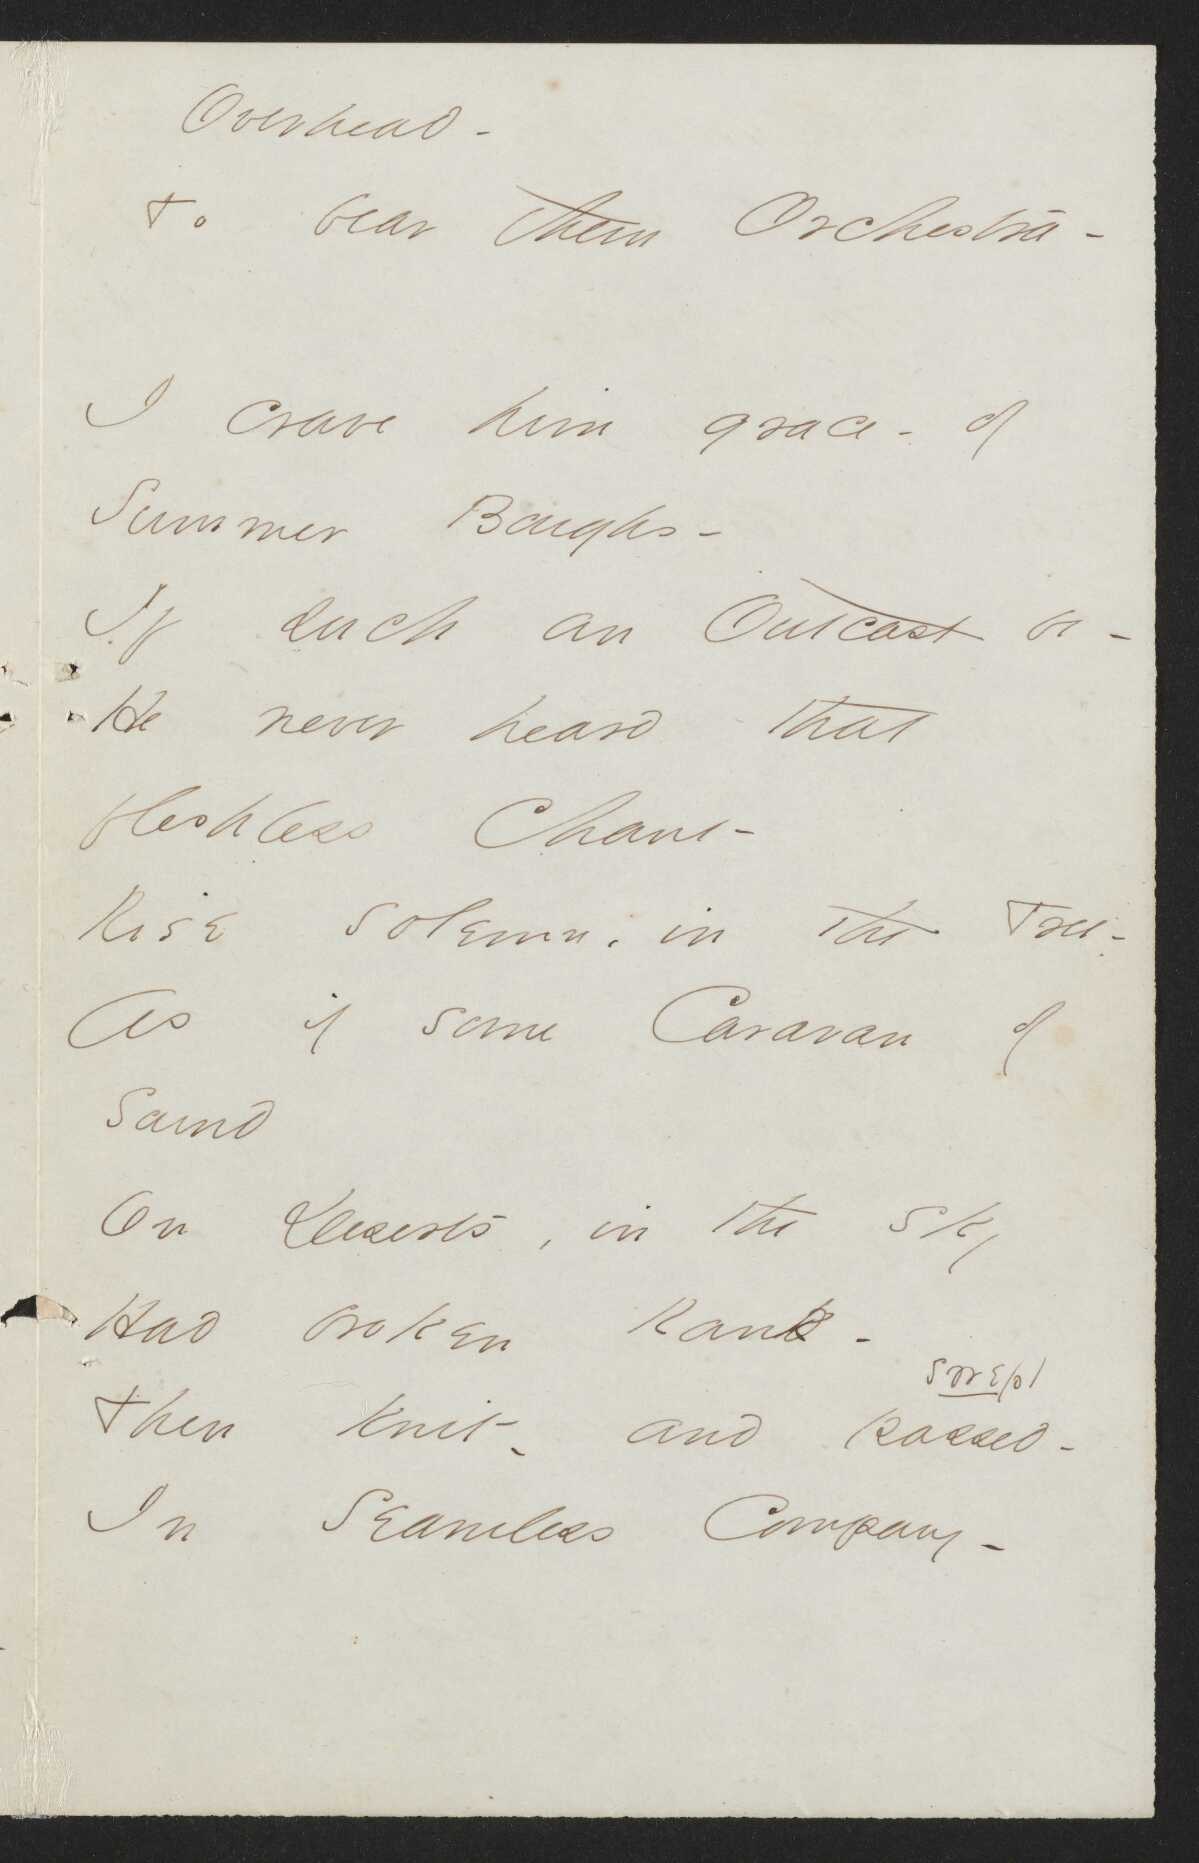 Overhead -
To bear them Orchestra -
I crave him grace - of
Summer Boughs -
If such an Outcast be -
He never heard that
fleshless Chant -
Rise solemn, in the Tree -
As if some Caravan of
Sound
On Deserts, in the Sky
Had broken Rank -
swept
Then knit - and passed -
In Seamless Company -